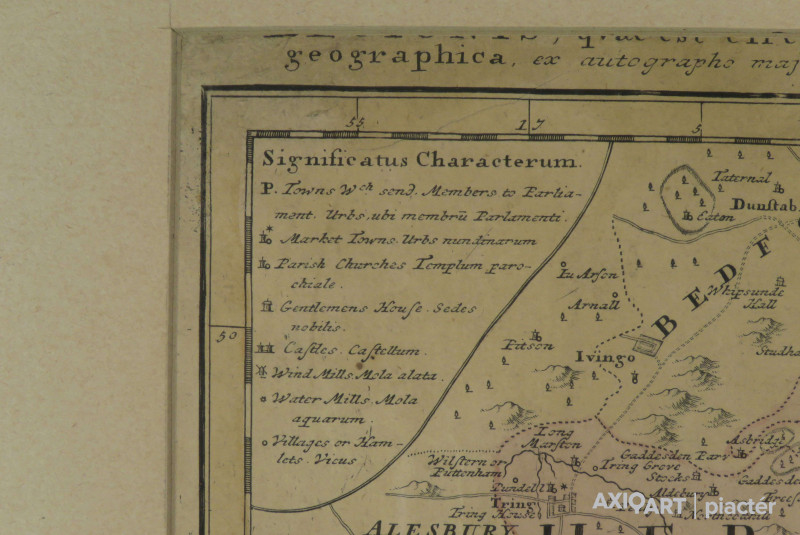 geographica, ex autographo maj
55
17
5
50
Significatus Characterum.
P. Towns Wch send. Members to Parlia-
ment. Urbs, ubi membrū Parlamenti.
Market Towns. Urbs nundinarum
Parish Churches Templum paro-
chiale.
Gentlemens House. Sedes
nobilis.
Castles. Castellum.
Wind Mills. Mola alata.
Water Mills. Mola
aquarum.
Villages or Ham-
lets. Vicus
Taternal
Dunstab
Eaton
BEDF
In Arson
Whipsunde
Hall
Arnall
Pitson
Ivingo
Studha
Long
Marston
Asbridg
Wilstern or
Puttenham
Gaddesden Parv
Tring Grove
Stocks
Gaddesde
Pundell
Aldebury
Frees
Tring
Tring House
Northcound
ALESBURY
HER
AXIOART | piacter